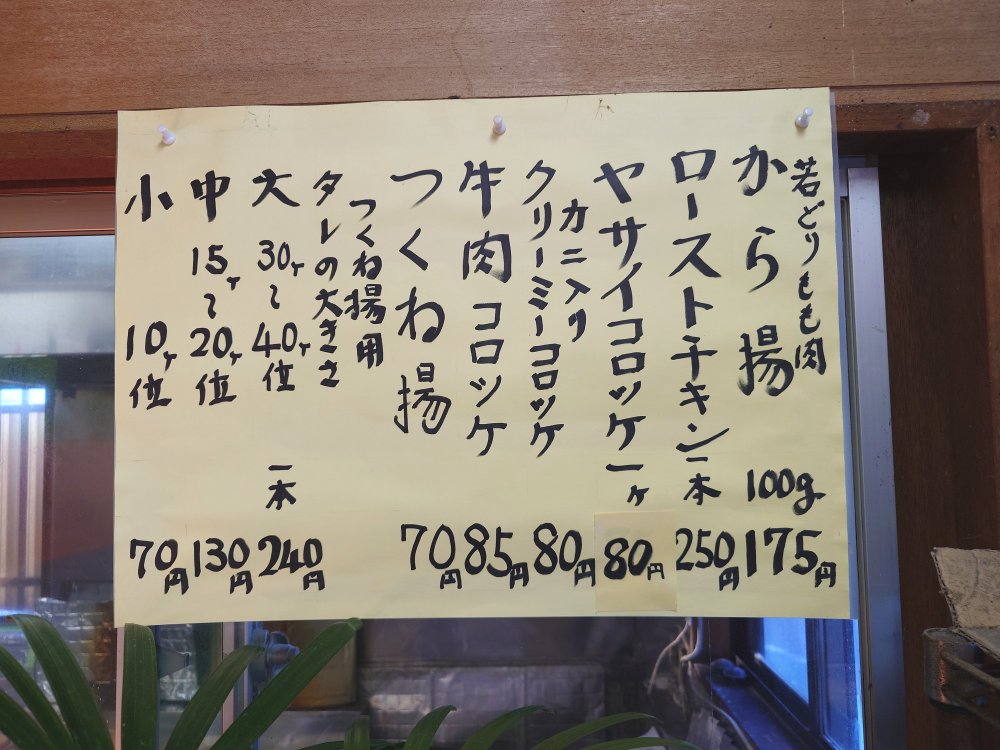 若どりもも肉
から揚 100g 175円
ローストチキン一本 250円
ヤサイコロッケ一ヶ 80円
カニ入り
クリーミーコロッケ 80円
牛肉コロッケ 85円
つくね揚 70円
つくね揚用
タレの大きさ
大 30ヶ〜40ヶ位 一本 240円
中 15ヶ〜20ヶ位 130円
小 10ヶ位 70円